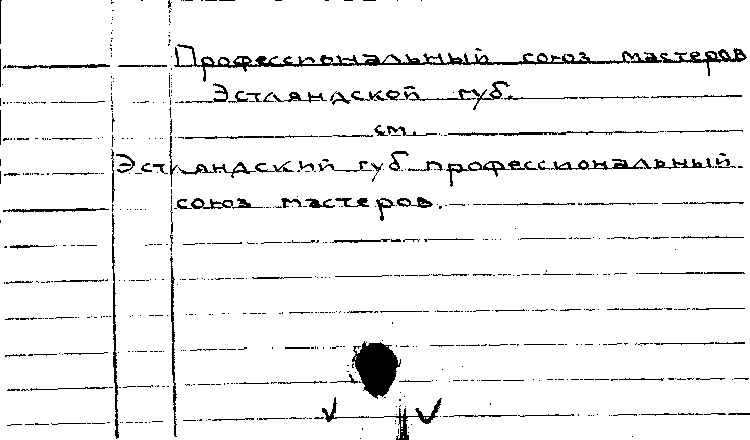 Профессиональный союз мастеров
Эстляндской губ.
см.
Эстляндский губ профессиональный
союз мастеров.